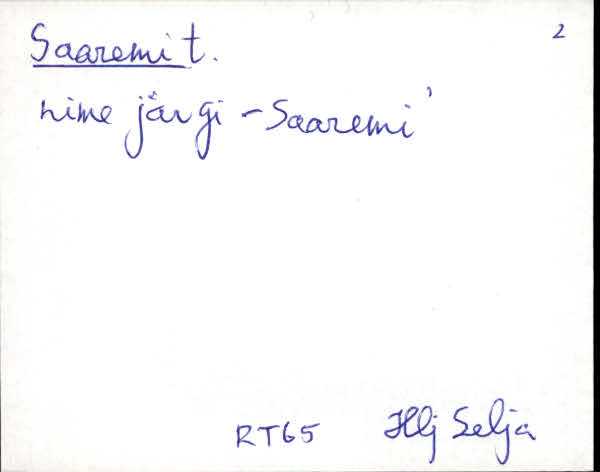 Saaremi t. 2
nime järgi - Saaremi'
RT65 Hlj Selja